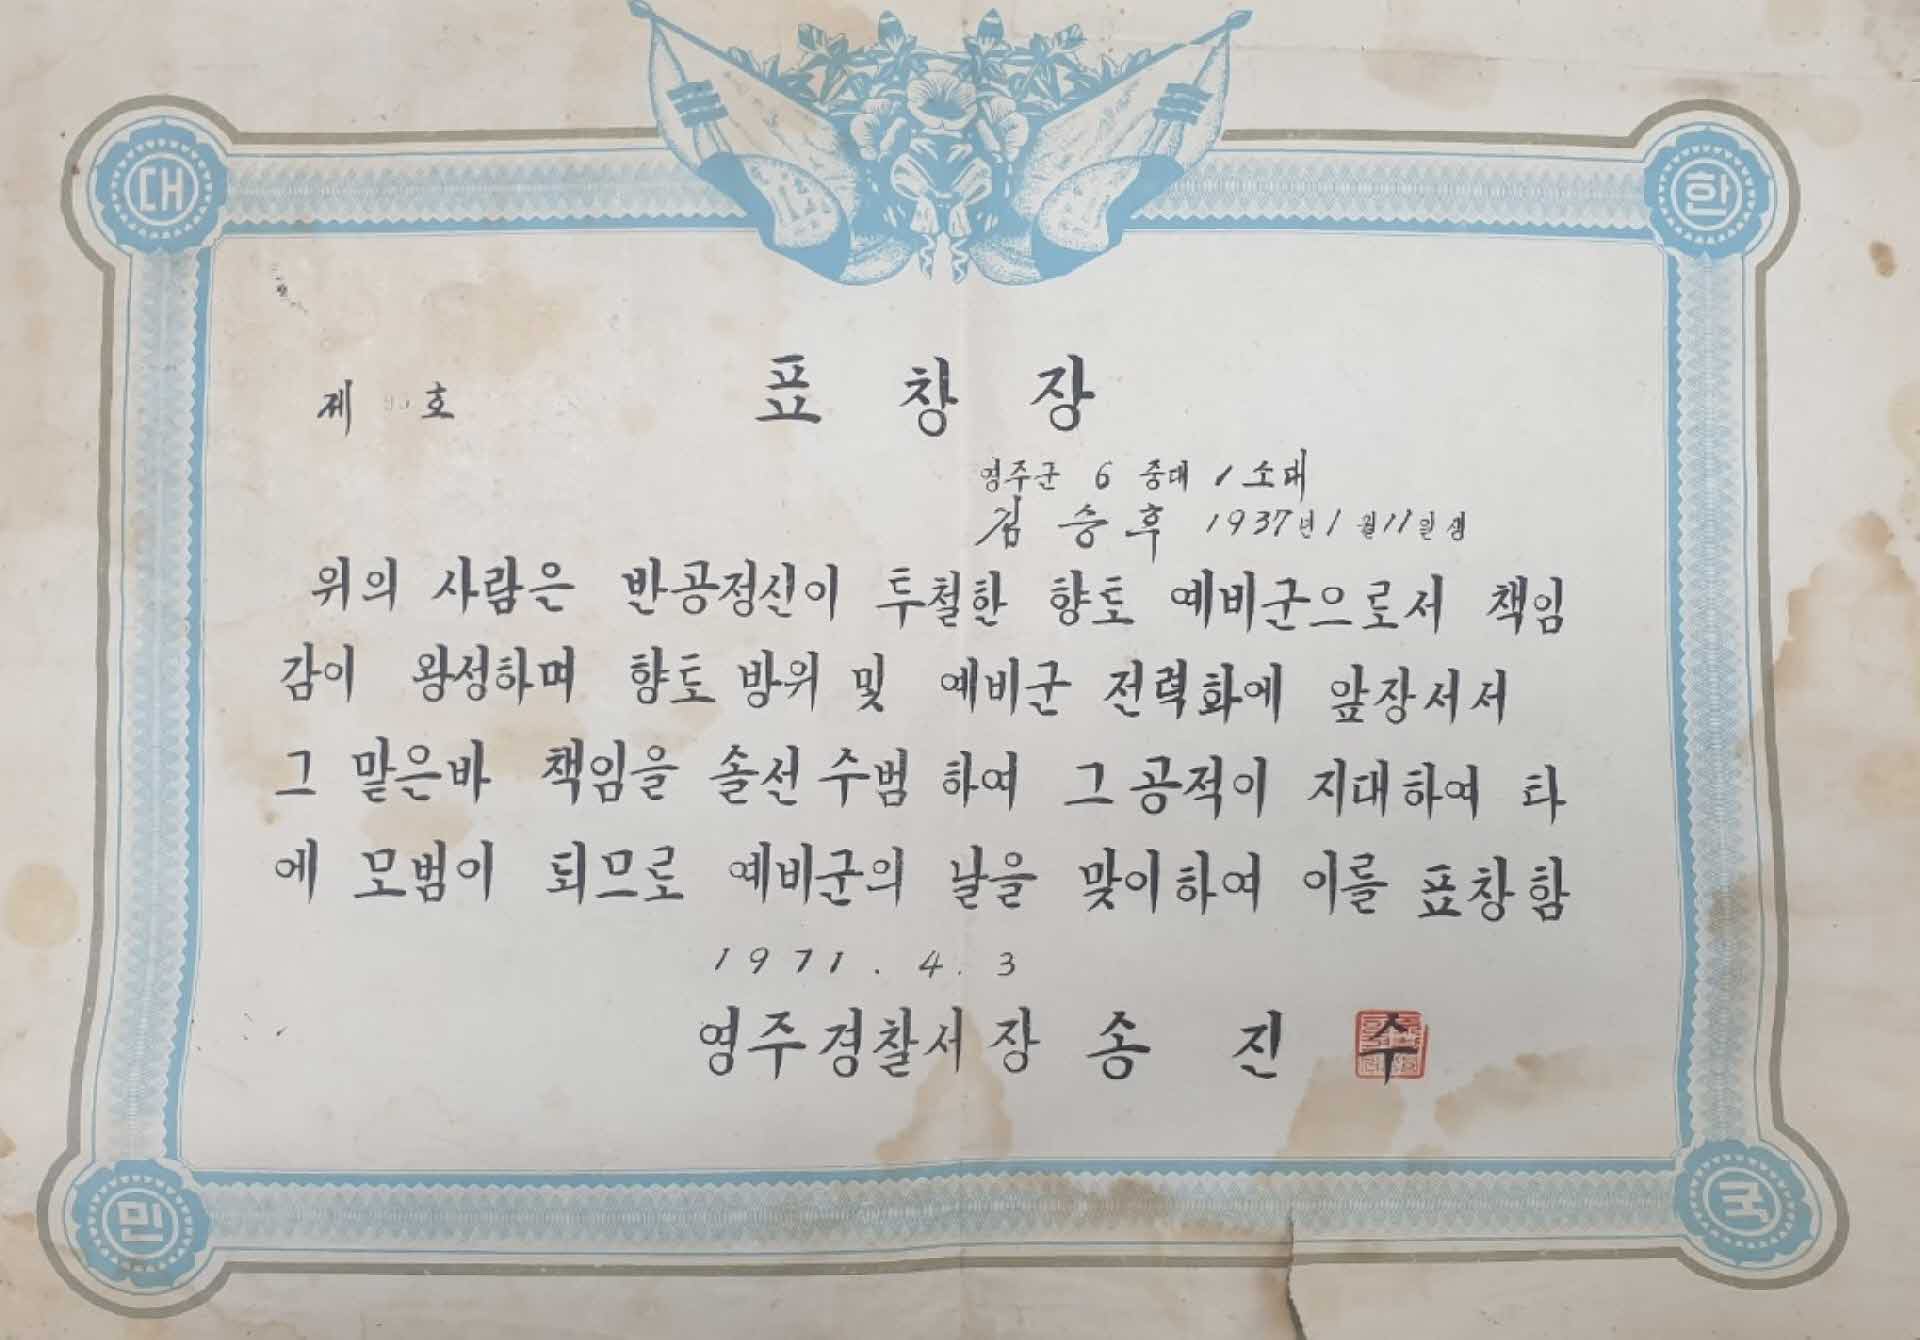 대 한
제 호 표 창 장
영주군 6 중대 1 소대
김 승 후 1937년 1월 11일 생
위의 사람은 반공정신이 투철한 향토 예비군으로서 책임
감이 왕성하며 향토 방위 및 예비군 전력화에 앞장서서
그 맡은바 책임을 솔선수범 하여 그 공적이 지대하여 타
에 모범이 되므로 예비군의 날을 맞이하여 이를 표창함
1971. 4. 3
영주경찰서장 송 진 수
민 국